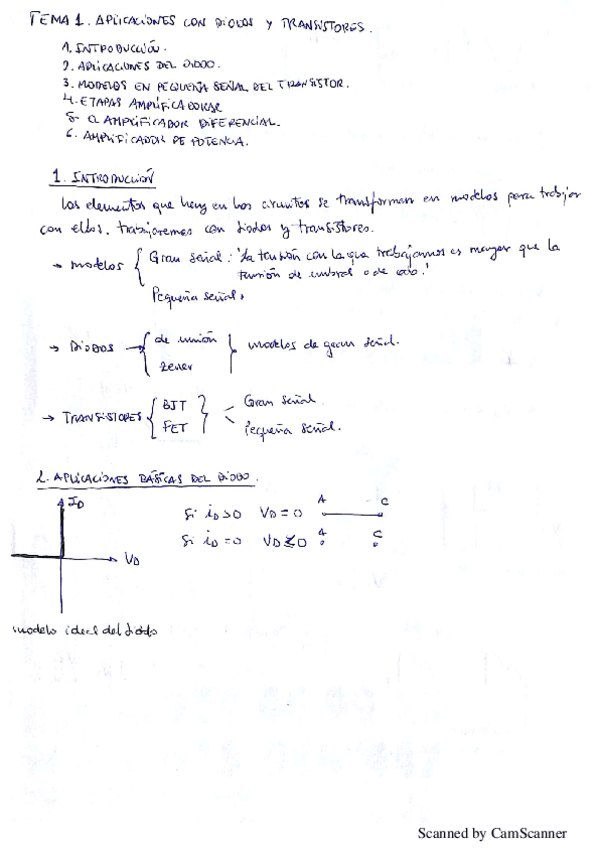 TEMA 1. APLICACIONES CON DIODOS Y TRANSISTORES.
1. INTRODUCCIÓN.
2. APLICACIONES DEL DIODO.
3. MODELOS EN PEQUEÑA SEÑAL DEL TRANSISTOR.
4. ETAPAS AMPLIFICADORAS
5. EL AMPLIFICADOR DIFERENCIAL.
6. AMPLIFICADOR DE POTENCIA.
1. INTRODUCCIÓN
Los elementos que hay en los circuitos se transforman en modelos para trabajar
con ellos. trabajaremos con diodos y transistores.
→ modelos { Gran señal: 'La tensión con la que trabajamos es mayor que la
tensión de umbral o de codo.'
Pequeña señal.
→ DIODOS → { de unión } modelos de gran señal.
zener
→ TRANSISTORES { BJT } Gran señal.
FET Pequeña señal.
2. APLICACIONES BÁSICAS DEL DIODO.
ID
Si iD>0 VD=0 A C
Si iD=0 VD≤0 A C
VD
modelo ideal del diodo
Scanned by CamScanner